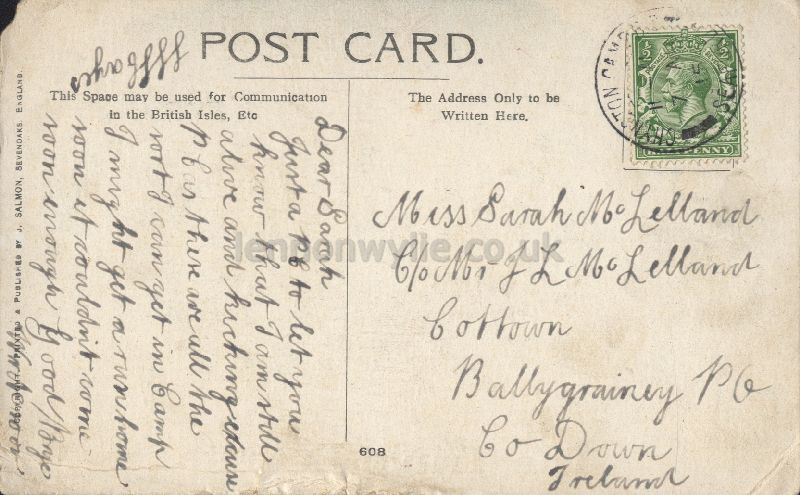 POST CARD.
This Space may be used for Communication
in the British Isles, Etc
The Address Only to be
Written Here.
Dear Sarah
Just a PC to let you
know that I am still
alive and kicking excuse
PC as these are all the
sort I can get in Camp
I might get a run home
soon it couldn't come
soon enough Good Bye
Miss Sarah McLelland
C/o Mr J L McLelland
Cottown
Ballygrainey PO
Co Down
Ireland
608
COPYRIGHT. PRINTED & PUBLISHED BY J. SALMON, SEVENOAKS, ENGLAND.
½ ½
PENNY
lennonwylie.co.uk